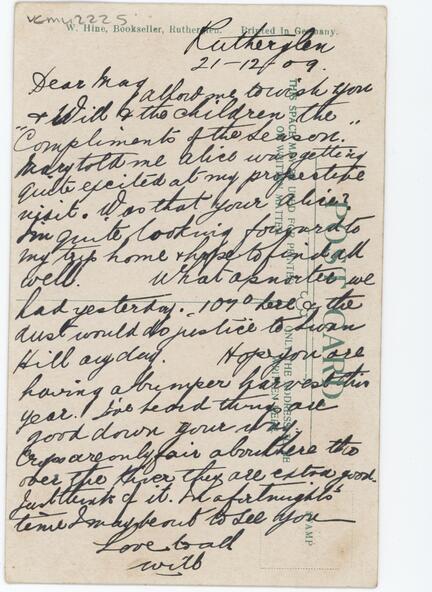 vcmy2225
W. Hine, Bookseller, Rutherglen. Printed In Germany.
Rutherglen
21-12-09.
Dear Mag
allow me to wish you
& Will & the children the
"Compliments of the Season."
Mary told me Alice was getting
quite excited at my prospective
visit. Was that your Alice?
I'm quite looking forward to
my trip home & hope to find all
well. What a snorter we
had yesterday. 107° here & the
dust would do justice to Swan
Hill any day. Hope you are
having a bumper harvest this
year. I've heard things are
good down your way.
Crops are only fair about here tho
over the river they are extra good.
Just think of it. In a fortnights'
time I may be out to see you
Love to all
Will
POST CARD
THIS SPACE MAY BE USED FOR PRINTED
OR WRITTEN MATTER
ONLY THE ADDRESS
STAMP